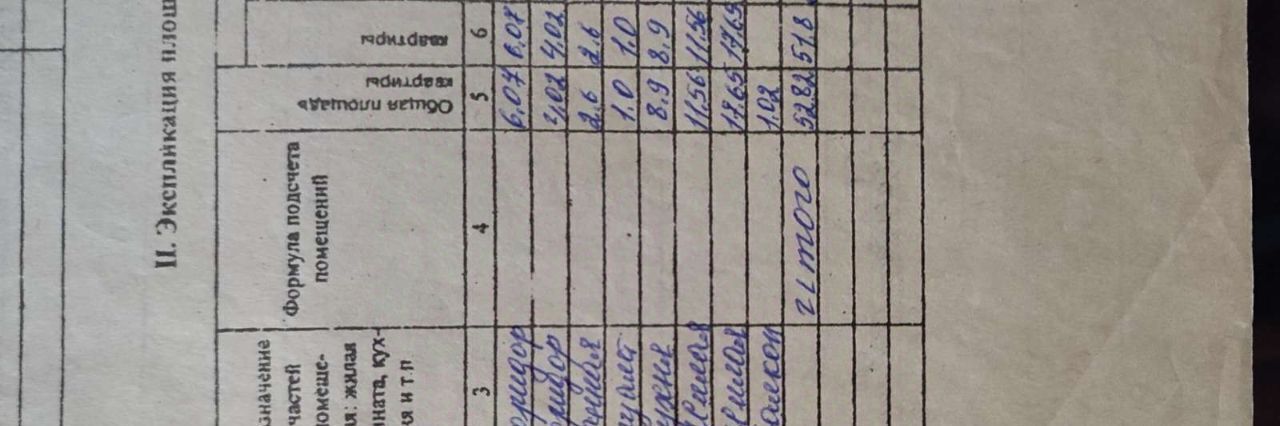 II. Экспликация площ
значение
частей
помеще-
ия: жилая
ната, кух-
я и т.п
Формула подсчета
помещений
Общая площадь
квартиры
квартиры
3 4 5 6
оридор 6.07 6.07
ридор 4,02 4,02
2.6 2.6
туалет 1.0 1.0
кухня 8.9 8.9
Жилая 11,56 11,56
Жилая 17.65 17.65
алкон 1.02
Итого 52.82 51.8